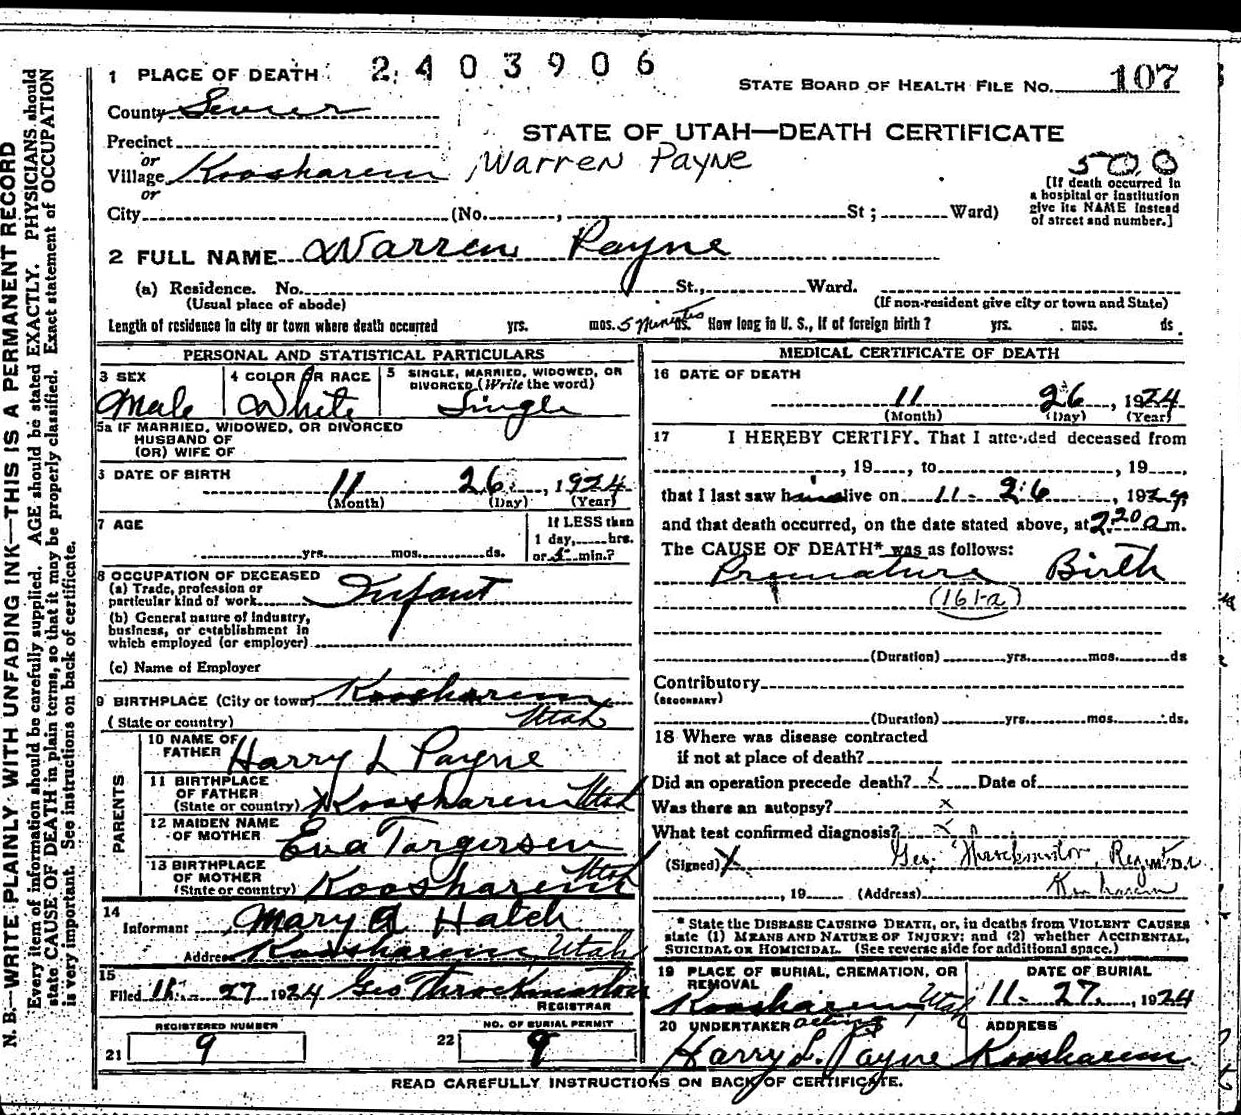 2403906
1 PLACE OF DEATH
STATE BOARD OF HEALTH FILE No. 107
County Sevier
STATE OF UTAH—DEATH CERTIFICATE
Precinct
or
Village Koosharem
Warren Payne
500
or
[If death occurred in a hospital or institution give its NAME instead of street and number.]
City (No. , St ; Ward)
2 FULL NAME Warren Payne
(a) Residence. No. St., Ward.
(Usual place of abode) (If non-resident give city or town and State)
Length of residence in city or town where death occurred yrs. mos. 5 Minutes ds. How long in U. S., if of foreign birth? yrs. mos. ds.
PERSONAL AND STATISTICAL PARTICULARS
3 SEX Male
4 COLOR OR RACE White
5 SINGLE, MARRIED, WIDOWED, OR DIVORCED (Write the word) Single
5a IF MARRIED, WIDOWED, OR DIVORCED
HUSBAND OF
(OR) WIFE OF
3 DATE OF BIRTH 11 26 , 1924
(Month) (Day) (Year)
7 AGE yrs. mos. ds.
If LESS than
1 day, hrs.
or 5 min.?
8 OCCUPATION OF DECEASED
(a) Trade, profession or
particular kind of work Infant
(b) General nature of industry,
business, or establishment in
which employed (or employer)
(c) Name of Employer
9 BIRTHPLACE (City or town) Koosharem
(State or country) Utah
PARENTS
10 NAME OF FATHER Harry L Payne
11 BIRTHPLACE OF FATHER (State or country) Koosharem Utah
12 MAIDEN NAME OF MOTHER Eva Torgersen
13 BIRTHPLACE OF MOTHER (State or country) Koosharem Utah
14
Informant Mary A Hatch
Address Koosharem, Utah
15
Filed 11 - 27 1924 Geo Throckmorton
REGISTRAR
REGISTERED NUMBER
21 9
NO. OF BURIAL PERMIT
22 9
MEDICAL CERTIFICATE OF DEATH
16 DATE OF DEATH
11 26 , 1924
(Month) (Day) (Year)
17 I HEREBY CERTIFY, That I attended deceased from
, 19 , to , 19 ,
that I last saw him alive on 11 - 26 , 1924
and that death occurred, on the date stated above, at 2.20 a m.
The CAUSE OF DEATH* was as follows:
Premature Birth
(161-a)
(Duration) yrs. mos. ds
Contributory
(SECONDARY)
(Duration) yrs. mos. ds.
18 Where was disease contracted
if not at place of death?
Did an operation precede death? x Date of
Was there an autopsy? x
What test confirmed diagnosis? x
(Signed) X Geo. Throckmorton, M. D.
, 19 (Address) Koosharem
* State the DISEASE CAUSING DEATH, or, in deaths from VIOLENT CAUSES
state (1) MEANS AND NATURE OF INJURY; and (2) whether ACCIDENTAL,
SUICIDAL OR HOMICIDAL. (See reverse side for additional space.)
19 PLACE OF BURIAL, CREMATION, OR REMOVAL
Koosharem Utah
DATE OF BURIAL
11 - 27 , 1924
20 UNDERTAKER acting
Harry L. Payne
ADDRESS
Koosharem
READ CAREFULLY INSTRUCTIONS ON BACK OF CERTIFICATE.
N. B.—WRITE PLAINLY WITH UNFADING INK—THIS IS A PERMANENT RECORD
Every item of information should be carefully supplied. AGE should be stated EXACTLY. PHYSICIANS should
state CAUSE OF DEATH in plain terms, so that it may be properly classified. Exact statement of OCCUPATION
is very important. See instructions on back of certificate.